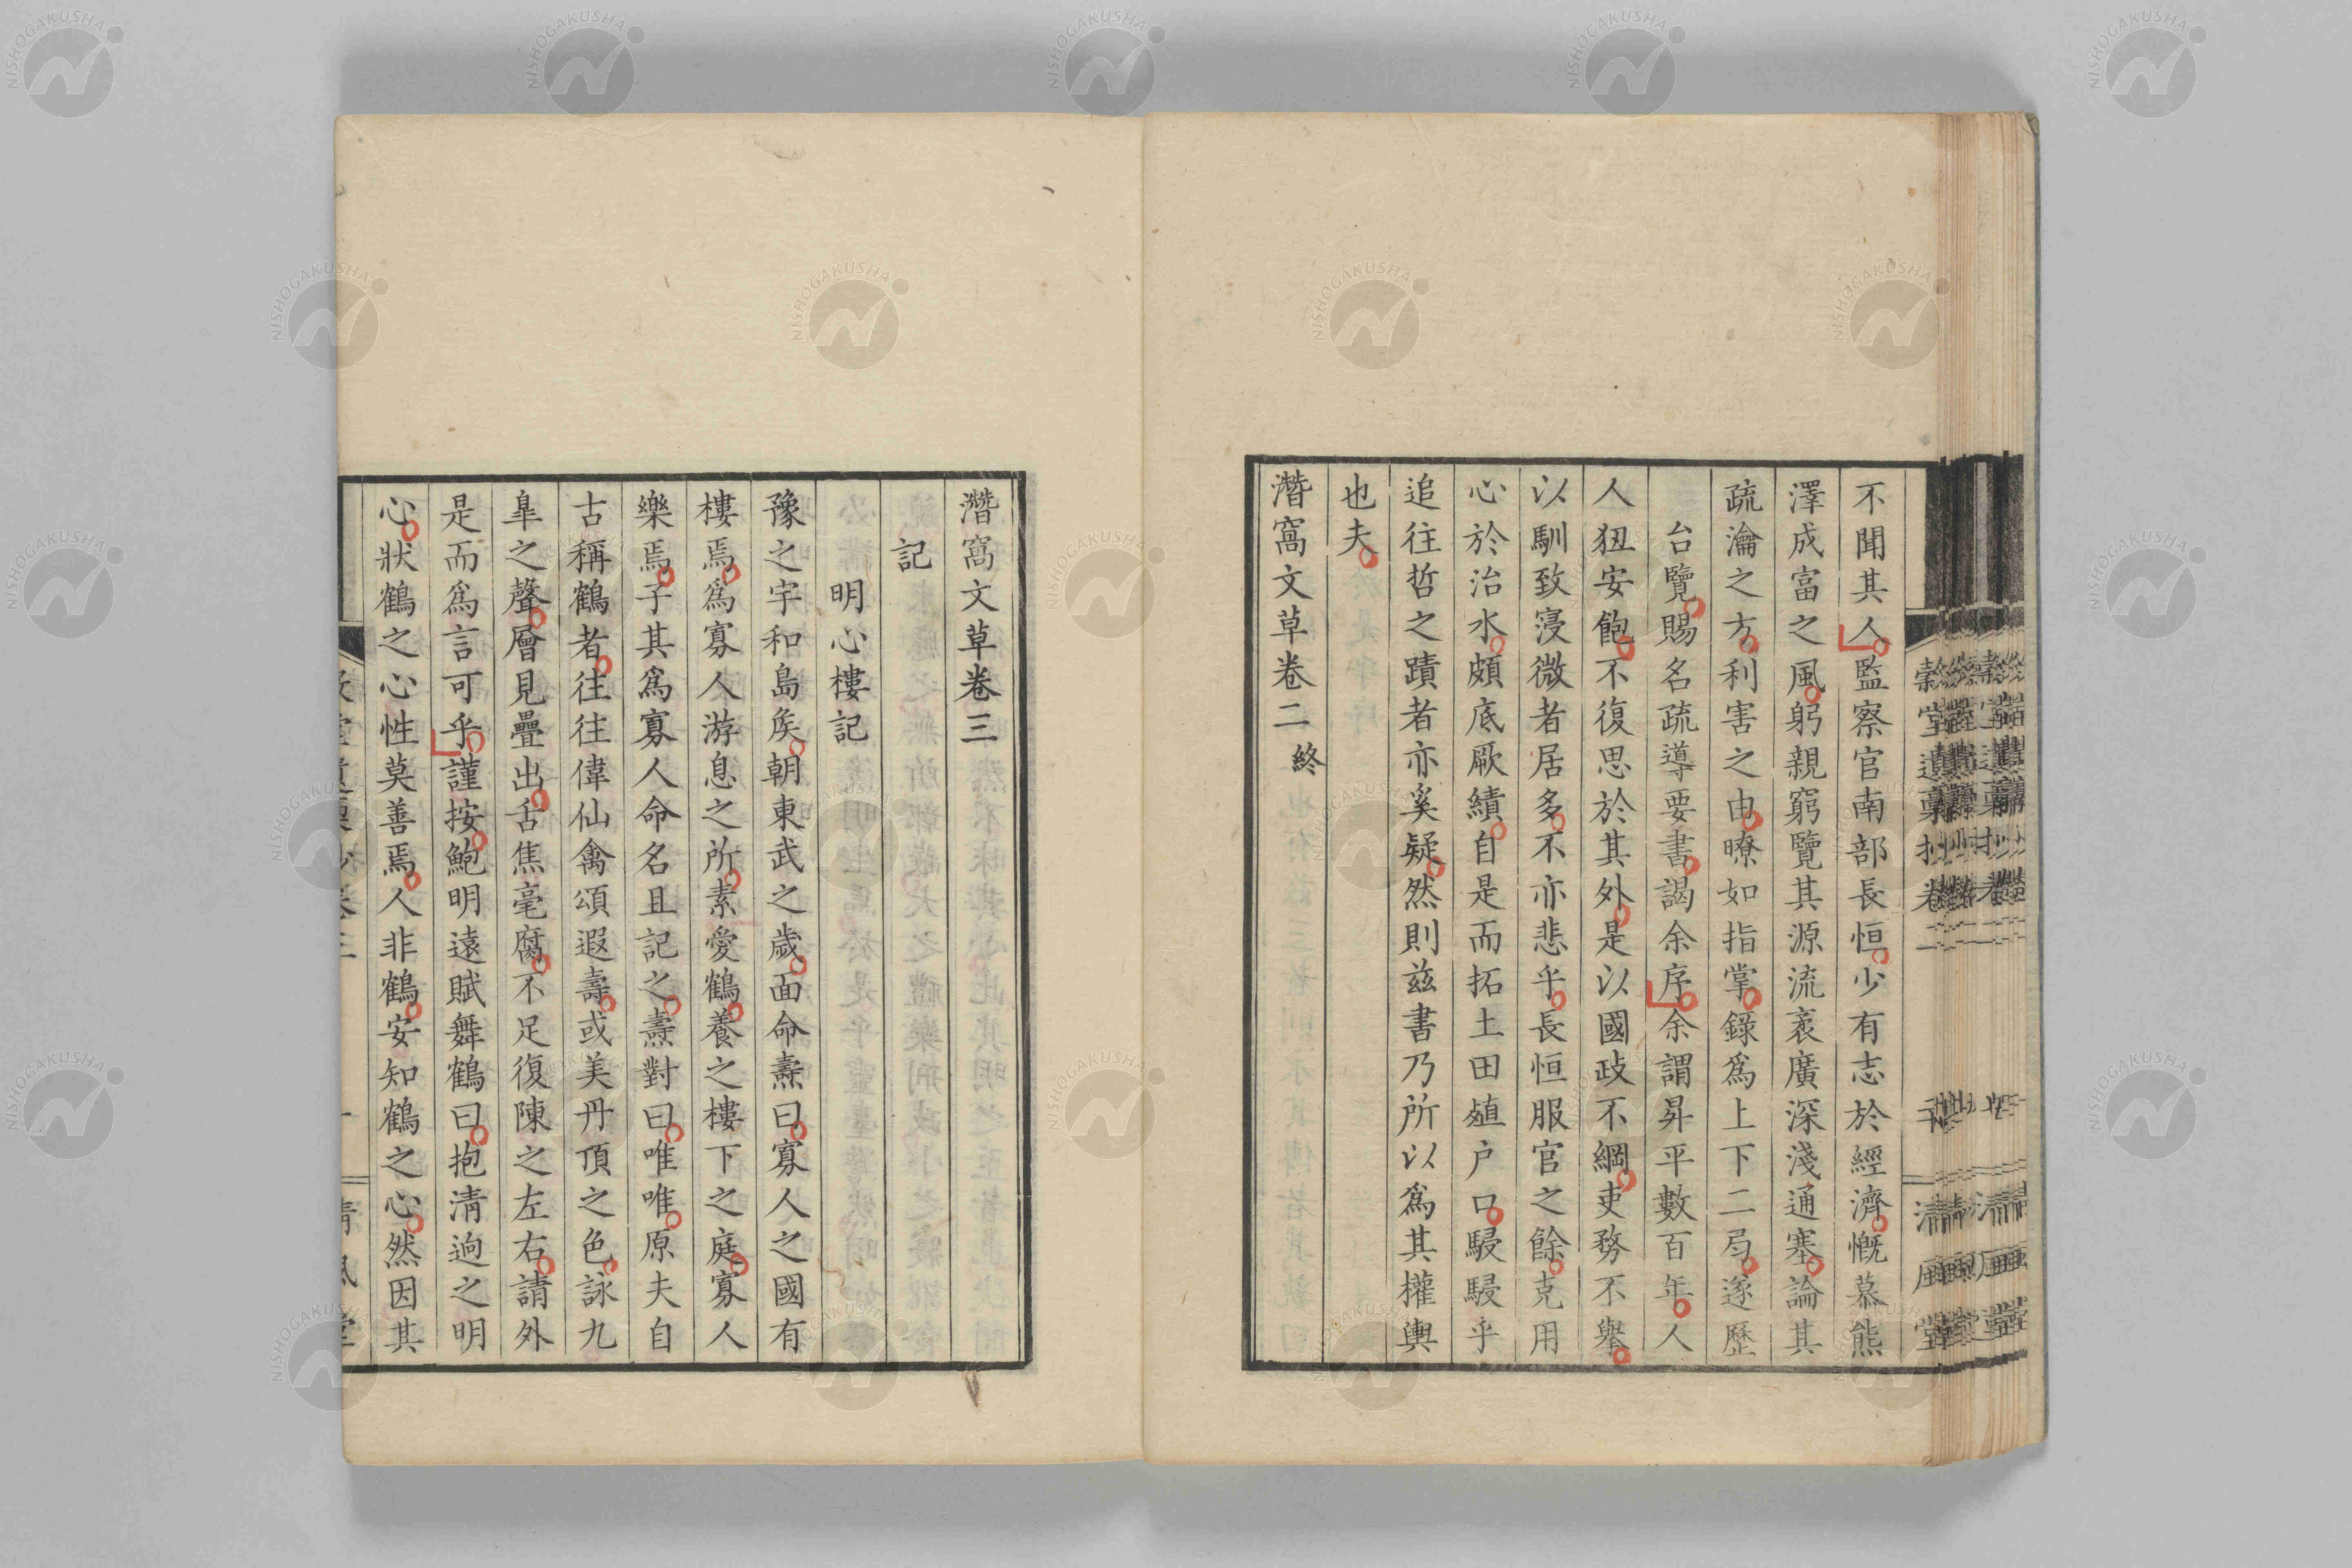 不聞其人監察官南部長恒少有志於經濟慨慕熊
澤成富之風躬親窮覽其源流袤廣深淺通塞論其
疏瀹之方利害之由暸如指掌錄爲上下二局遂歷
台覽賜名疏導要書謁余序余謂昇平數百年人
人狃安飽不復思於其外是以國歧不綱吏務不舉
以馴致寖微者居多不亦悲乎長恒服官之餘克用
心於治水頗底厥績自是而拓土田殖戶口駸駸乎
追往哲之蹟者亦奚疑然則茲書乃所以爲其權輿
也夫
潛窩文草卷二 終
潛窩文草卷三
記
明心樓記
豫之宇和島矦朝東武之歲面命燾曰寡人之國有
樓焉爲寡人游息之所素愛鶴養之樓下之庭寡人
樂焉子其爲寡人命名且記之燾對曰唯唯原夫自
古稱鶴者往往偉仙禽頌遐壽或美丹頂之色詠九
皐之聲層見疊出舌焦毫腐不足復陳之左右請外
是而爲言可乎謹按鮑明遠賦舞鶴曰抱淸迥之明
心狀鶴之心性莫善焉人非鶴安知鶴之心然因其
NISHOGAKUSHA